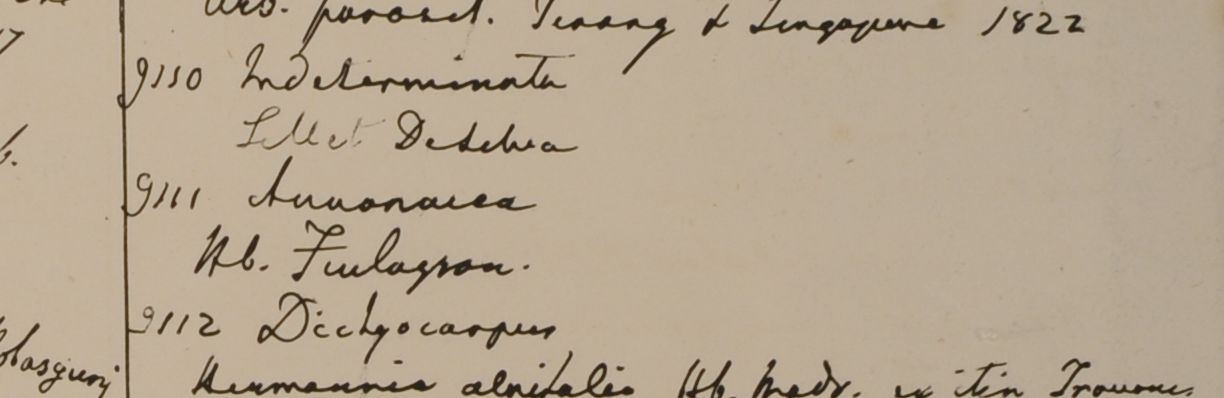 Arb. parasit. Penang & Singapore 1822
9110 Indeterminata
Sillet Desilva
9111 Annonacea
Hb. Finlayson.
9112 Dictyocarpus
Hermannia alnifolia Hb. Madr. ex itin